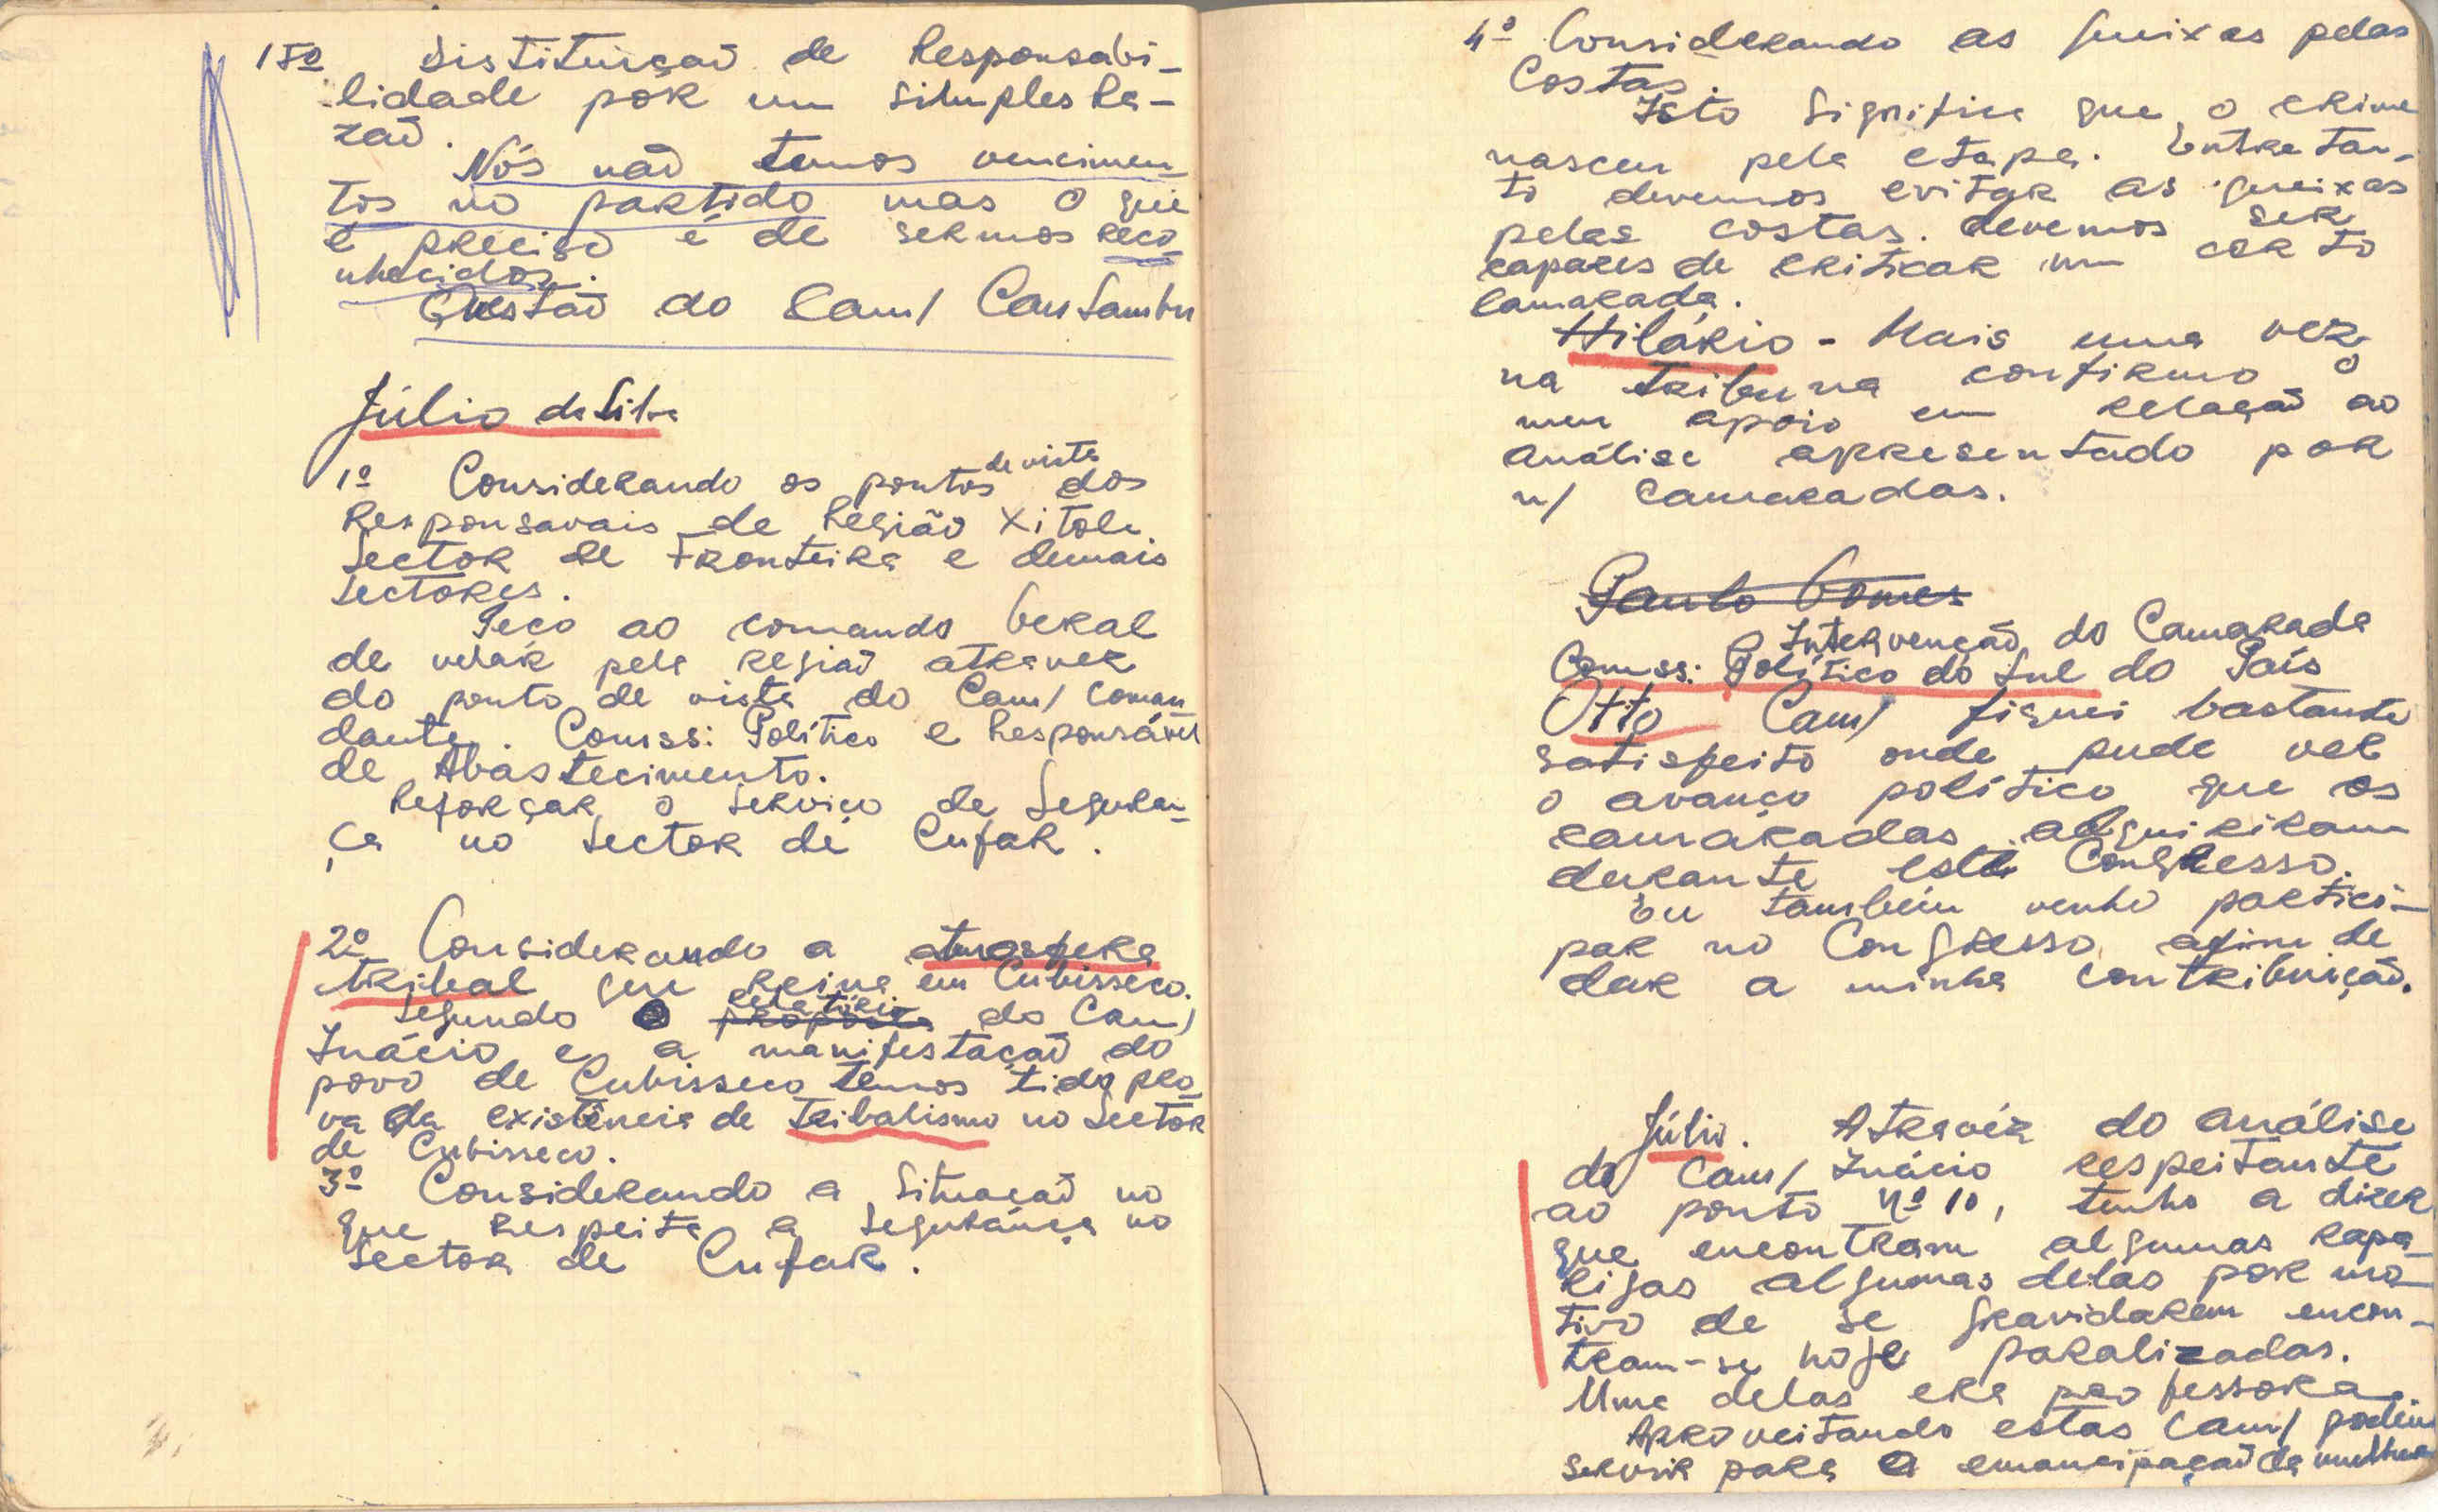 15º Distituiçaõ de Responsabi-
lidade pór um simples Ra-
zaõ.
Nós naõ temos vencimen-
tos no partido mas o que
é preciso é de sermos reco-
nhecidos.
Questaõ do Cam/ Cansambu
Júlio da Silva
1º Considerando os pontos de vista dos
Responsavais de Região Xitole
Sector de Fronteira e demais
Sectores.
Peço ao comando Geral
de velar pela regiaõ atravez
do ponto de vista do Cam/ Coman
dante. Comss: Político e Responsável
de Abastecimento.
Reforçar o Serviço de Seguran-
ça no Sector de Cufar.
2º Considerando a atmosfera
tribal que reina em Cubisseco.
Segundo o proposta relatório do Cam/
Inácio e a manifestaçaõ do
povo de Cubisseco temos tido pro-
va da existência de tribalismo no Sector
de Cubisseco.
3º Considerando a Situaçaõ no
que respeita a Segurança no
Sector de Cufar.
4º Considerando as queixas pelas
Costas.
Isto Significa que o crime
nasceu pela etapa. Entretan-
to devemos evitar as queixas
pelas costas. devemos ser
capazes de criticar um certo
camarada.
Hilário - Mais uma vez
na tribuna confirmo o
meu apoio em relaçaõ ao
análise apresentado por
n/ camaradas.
Paulo Gomes
Intervençaõ do Camarada
Comss: Político do Sul do País
Otto Cam/ fiquei bastante
satisfeito onde pude ver
o avanço político que os
camaradas alquiriram
durante este Congresso.
Eu também venho partici-
par no Congresso afim de
dar a minha contribuiçaõ.
Júlio. Atravéz do análise
do Cam/ Inácio respeitante
ao ponto nº 10, tenho a dizer
que encontram algumas rapa-
rigas algumas delas por mo-
tivo de se gravidarem encon-
tram-se hoje paralizadas.
Uma delas era professora.
Aproveitando estas Cam/ podem
servir para a emancipaçaõ da mulher